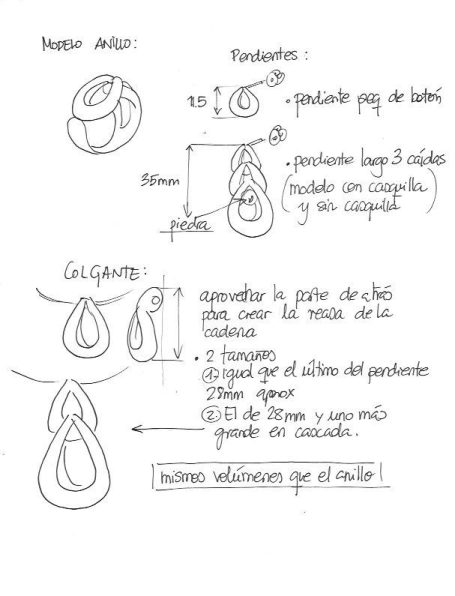 MODELO ANILLO:
Pendientes:
1.5
• pendiente peq de botón
35mm
• pendiente largo 3 caídas
(modelo con casquilla
y sin casquilla)
piedra
COLGANTE:
aprovechar la parte de atrás
para crear la reasa de la
cadena
• 2 tamaños
① Igual que el último del pendiente
28mm aprox
② El de 28mm y uno más
grande en cascada.
mismos volúmenes que el anillo